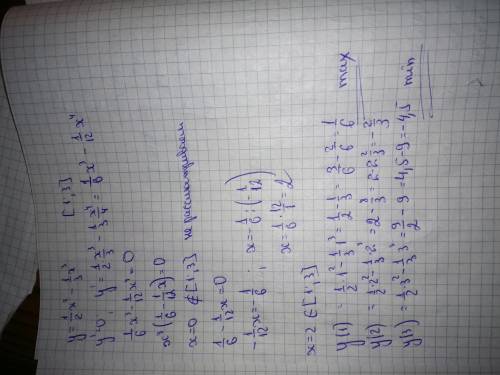 y = 1/2 x² - 1/3 x³ [1;3]
y' = 0; y' = 1/2 x³/3 - 1/3 x⁴/4 = 1/6 x³ - 1/12 x⁴
1/6 x³ - 1/12 x⁴ = 0
x³(1/6 - 1/12 x) = 0
x = 0 ∉ [1;3] не рассматриваем
1/6 - 1/12 x = 0
-1/12 x = -1/6; x = -1/6 : (-1/12)
x = 1/6 · 12/1 = 2
x = 2 ∈ [1;3]
y(1) = 1/2 · 1² - 1/3 · 1³ = 1/2 - 1/3 = 3/6 - 2/6 = 1/6 max
y(2) = 1/2 · 2² - 1/3 · 2³ = 2 - 8/3 = 2 - 2 2/3 = -2/3
y(3) = 1/2 · 3² - 1/3 · 3³ = 9/2 - 9 = 4,5 - 9 = -4,5 min